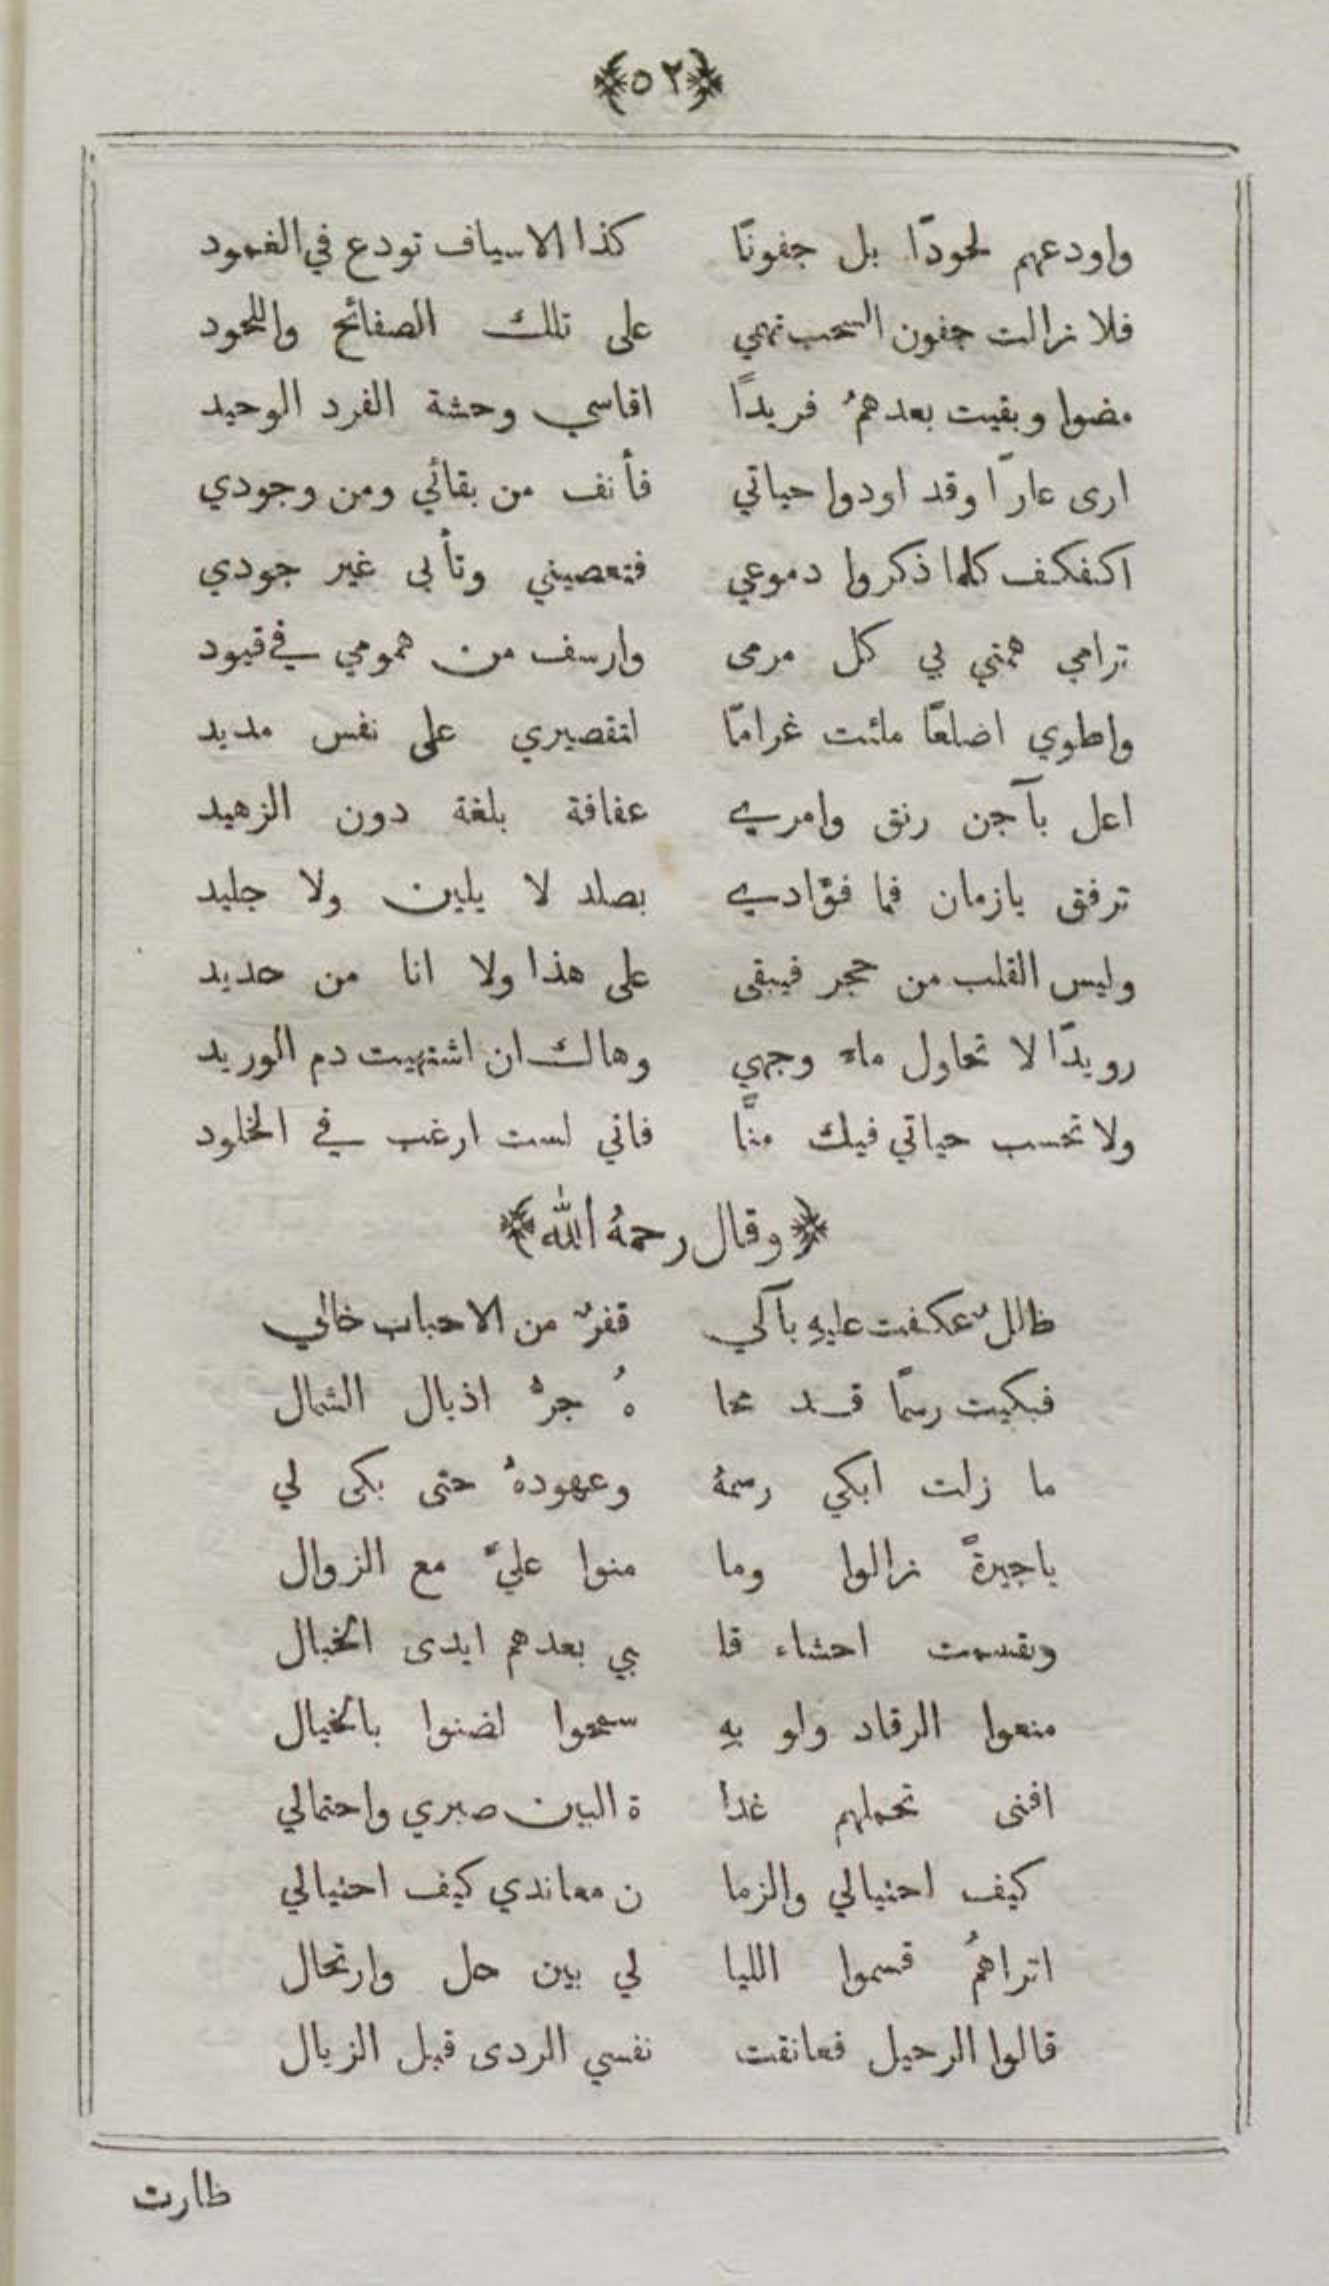 ﴿٥٢﴾
واودعهم لحودًا بل جفونًا كذا الاسياف تودع في الغمود
فلا زالت جفون السحب تهمي على تلك الصفائح واللحود
مضوا وبقيت بعدهمُ فريدًا اقاسي وحشة الفرد الوحيد
ارى عارًا وقد اودوا حياتي فأنف من بقائي ومن وجودي
اكفكف كلما ذكروا دموعي فتعصيني وتأبى غير جودي
ترامي همتي بي كل مرمى وارسف من همومي في قيود
واطوي اضلعًا ملئت غرامًا لتقصيري على نفس مديد
اعل بآجن رنق وامري عفافة بلغة دون الزهيد
ترفق يازمان فما فؤادي بصلد لا يلين ولا جليد
وليس القلب من حجر فيبقى على هذا ولا انا من حديد
رويدًا لا تحاول ماء وجهي وهاك ان اشتهيت دم الوريد
ولا تحسب حياتي فيك منًّا فاني لست ارغب في الخلود
﴿وقال رحمهُ الله﴾
طللٌ عكفت عليهِ بآكي قفرٌ من الاحباب خالي
فبكيت رسمًا قد محا هُ جرُّ اذيال الشمال
ما زلت ابكي رسمهُ وعهودهُ حتى بكى لي
ياجيرةً زالوا وما منوا عليَّ مع الزوال
وتقسمت احشاء قل بي بعدهم ايدى الخبال
منعوا الرقاد ولو بهِ سمحوا لضنوا بالخيال
افنى تحملهم غدا ة البين صبري واحتمالي
كيف احتيالي والزما ن معاندي كيف احتيالي
اتراهمُ قسموا الليا لي بين حل وارتحال
قالوا الرحيل فعانقت نفسي الردى قبل الزيال
طارت